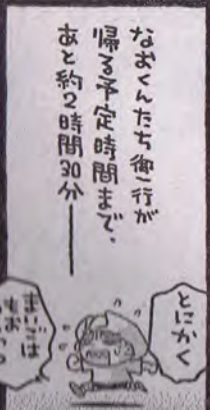 なおくんたち御一行が
帰る予定時間まで、
あと約2時間30分――
とにかく
まいごは